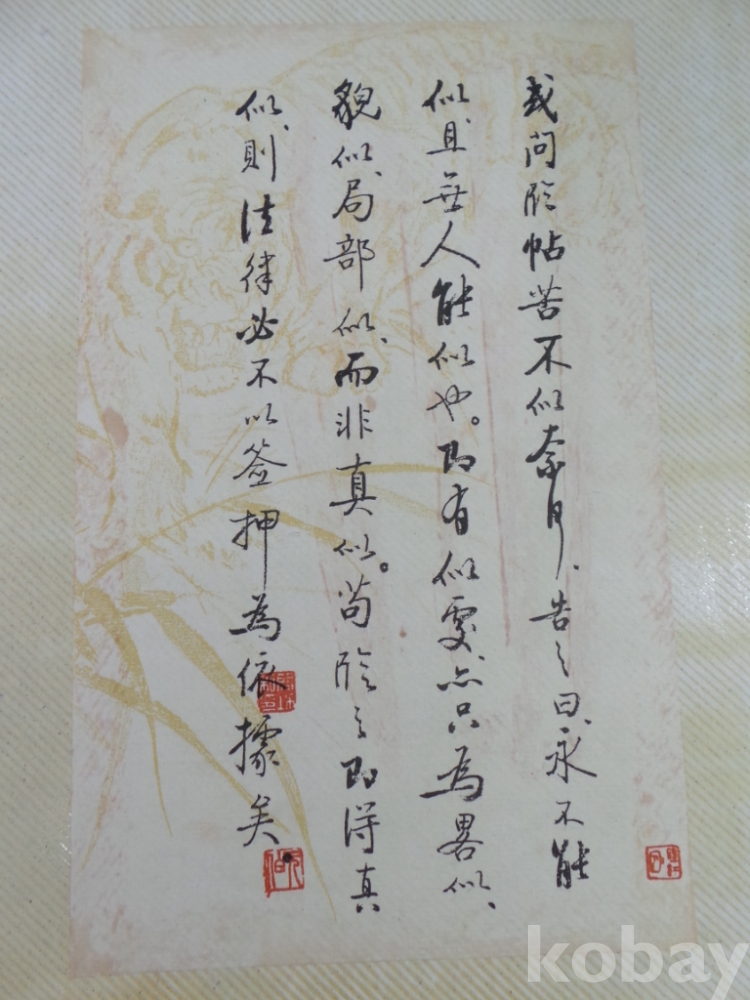 或问临帖苦不似奈何、告之曰、永不能
似、且無人能似也。即有似處、亦只為畧似、
貌似、局部似、而非真似。苟临之即得真
似、則法律必不以签押為依據矣。
kobay